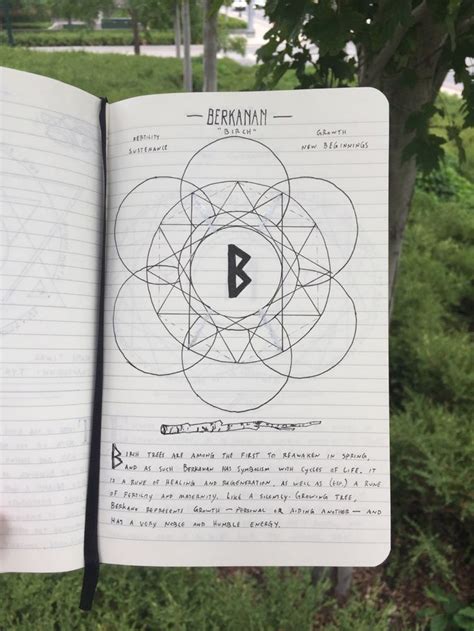 — BERKANAN —
"BIRCH"
FERTILITY
SUSTENANCE
GROWTH
NEW BEGINNINGS
ᛒ
BIRCH TREES ARE AMONG THE FIRST TO REAWAKEN IN SPRING,
AND AS SUCH BERKANAN HAS SYMBOLISM WITH CYCLES OF LIFE. IT
IS A RUNE OF HEALING AND REGENERATION, AS WELL AS (ESP.) A RUNE
OF FERTILITY AND MATERNITY. LIKE A SILENTLY-GROWING TREE,
BERKANO REPRESENTS GROWTH — PERSONAL OR AIDING ANOTHER — AND
HAS A VERY NOBLE AND HUMBLE ENERGY.